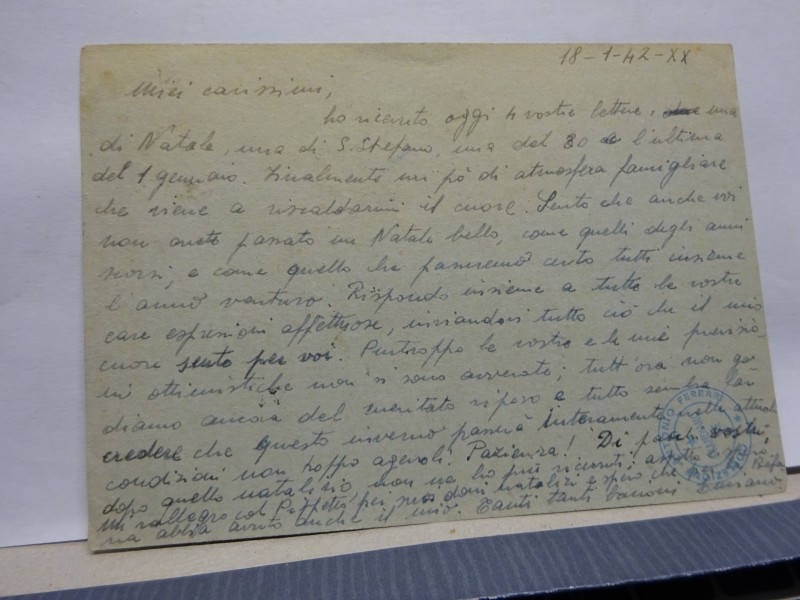 18-1-42-XX
Miei carissimi,
ho ricevuto oggi 4 vostre lettere, una
di Natale, una di S. Stefano, una del 30 e l'ultima
del 1 gennaio. Finalmente un pò di atmosfera famigliare
che viene a riscaldarmi il cuore. Sento che anche voi
non avete passato un Natale bello, come quelli degli anni
scorsi, e come quello che passeremo certo tutti insieme
l'anno venturo. Rispondo insieme a tutte le vostre
care espressioni affettuose, inviandovi tutto ciò che il mio
cuore sente per voi. Purtroppo le vostre e le mie previsio
ni ottimistiche non si sono avverate; tutt'ora non go
diamo ancora del meritato riposo e tutto sembra far
credere che questo inverno passerà interamente nelle attuali
condizioni non troppo agevoli. Pazienza! Di pacchi vostri,
dopo quello natalizio, non ne ho più ricevuti; aspetto
Mi rallegro col Peppetti pei suoi doni natalizi e spero che Befa
na abbia avuto anche il mio. Tanti tanti bacioni